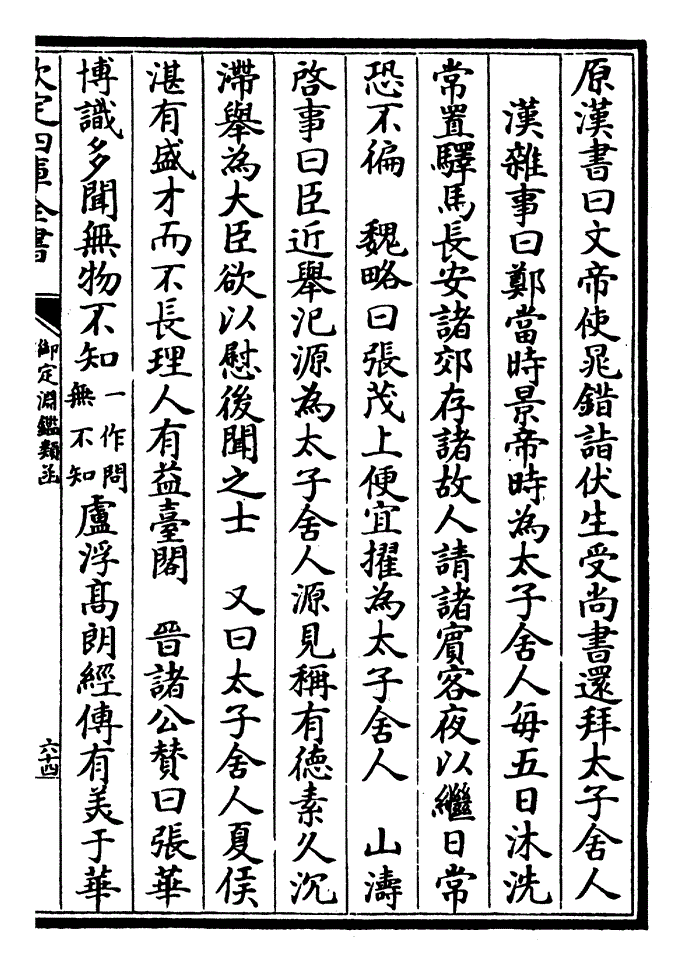 原漢書曰文帝使晁錯詣伏生受尚書還拜太子舍人
漢雜事曰鄭當時景帝時為太子舍人每五日沐洗
常置驛馬長安諸郊存諸故人請諸賓客夜以繼日常
恐不徧　魏略曰張茂上便宜擢為太子舍人　山濤
啓事曰臣近舉氾源為太子舍人源見稱有德素久沉
滯舉為大臣欲以慰後聞之士　又曰太子舍人夏侯
湛有盛才而不長理人有益臺閣　晉諸公贊曰張華
博識多聞無物不知一作問無不知盧浮髙朗經傳有美于華
欽定四庫全書
御定淵鑑類函
六十四